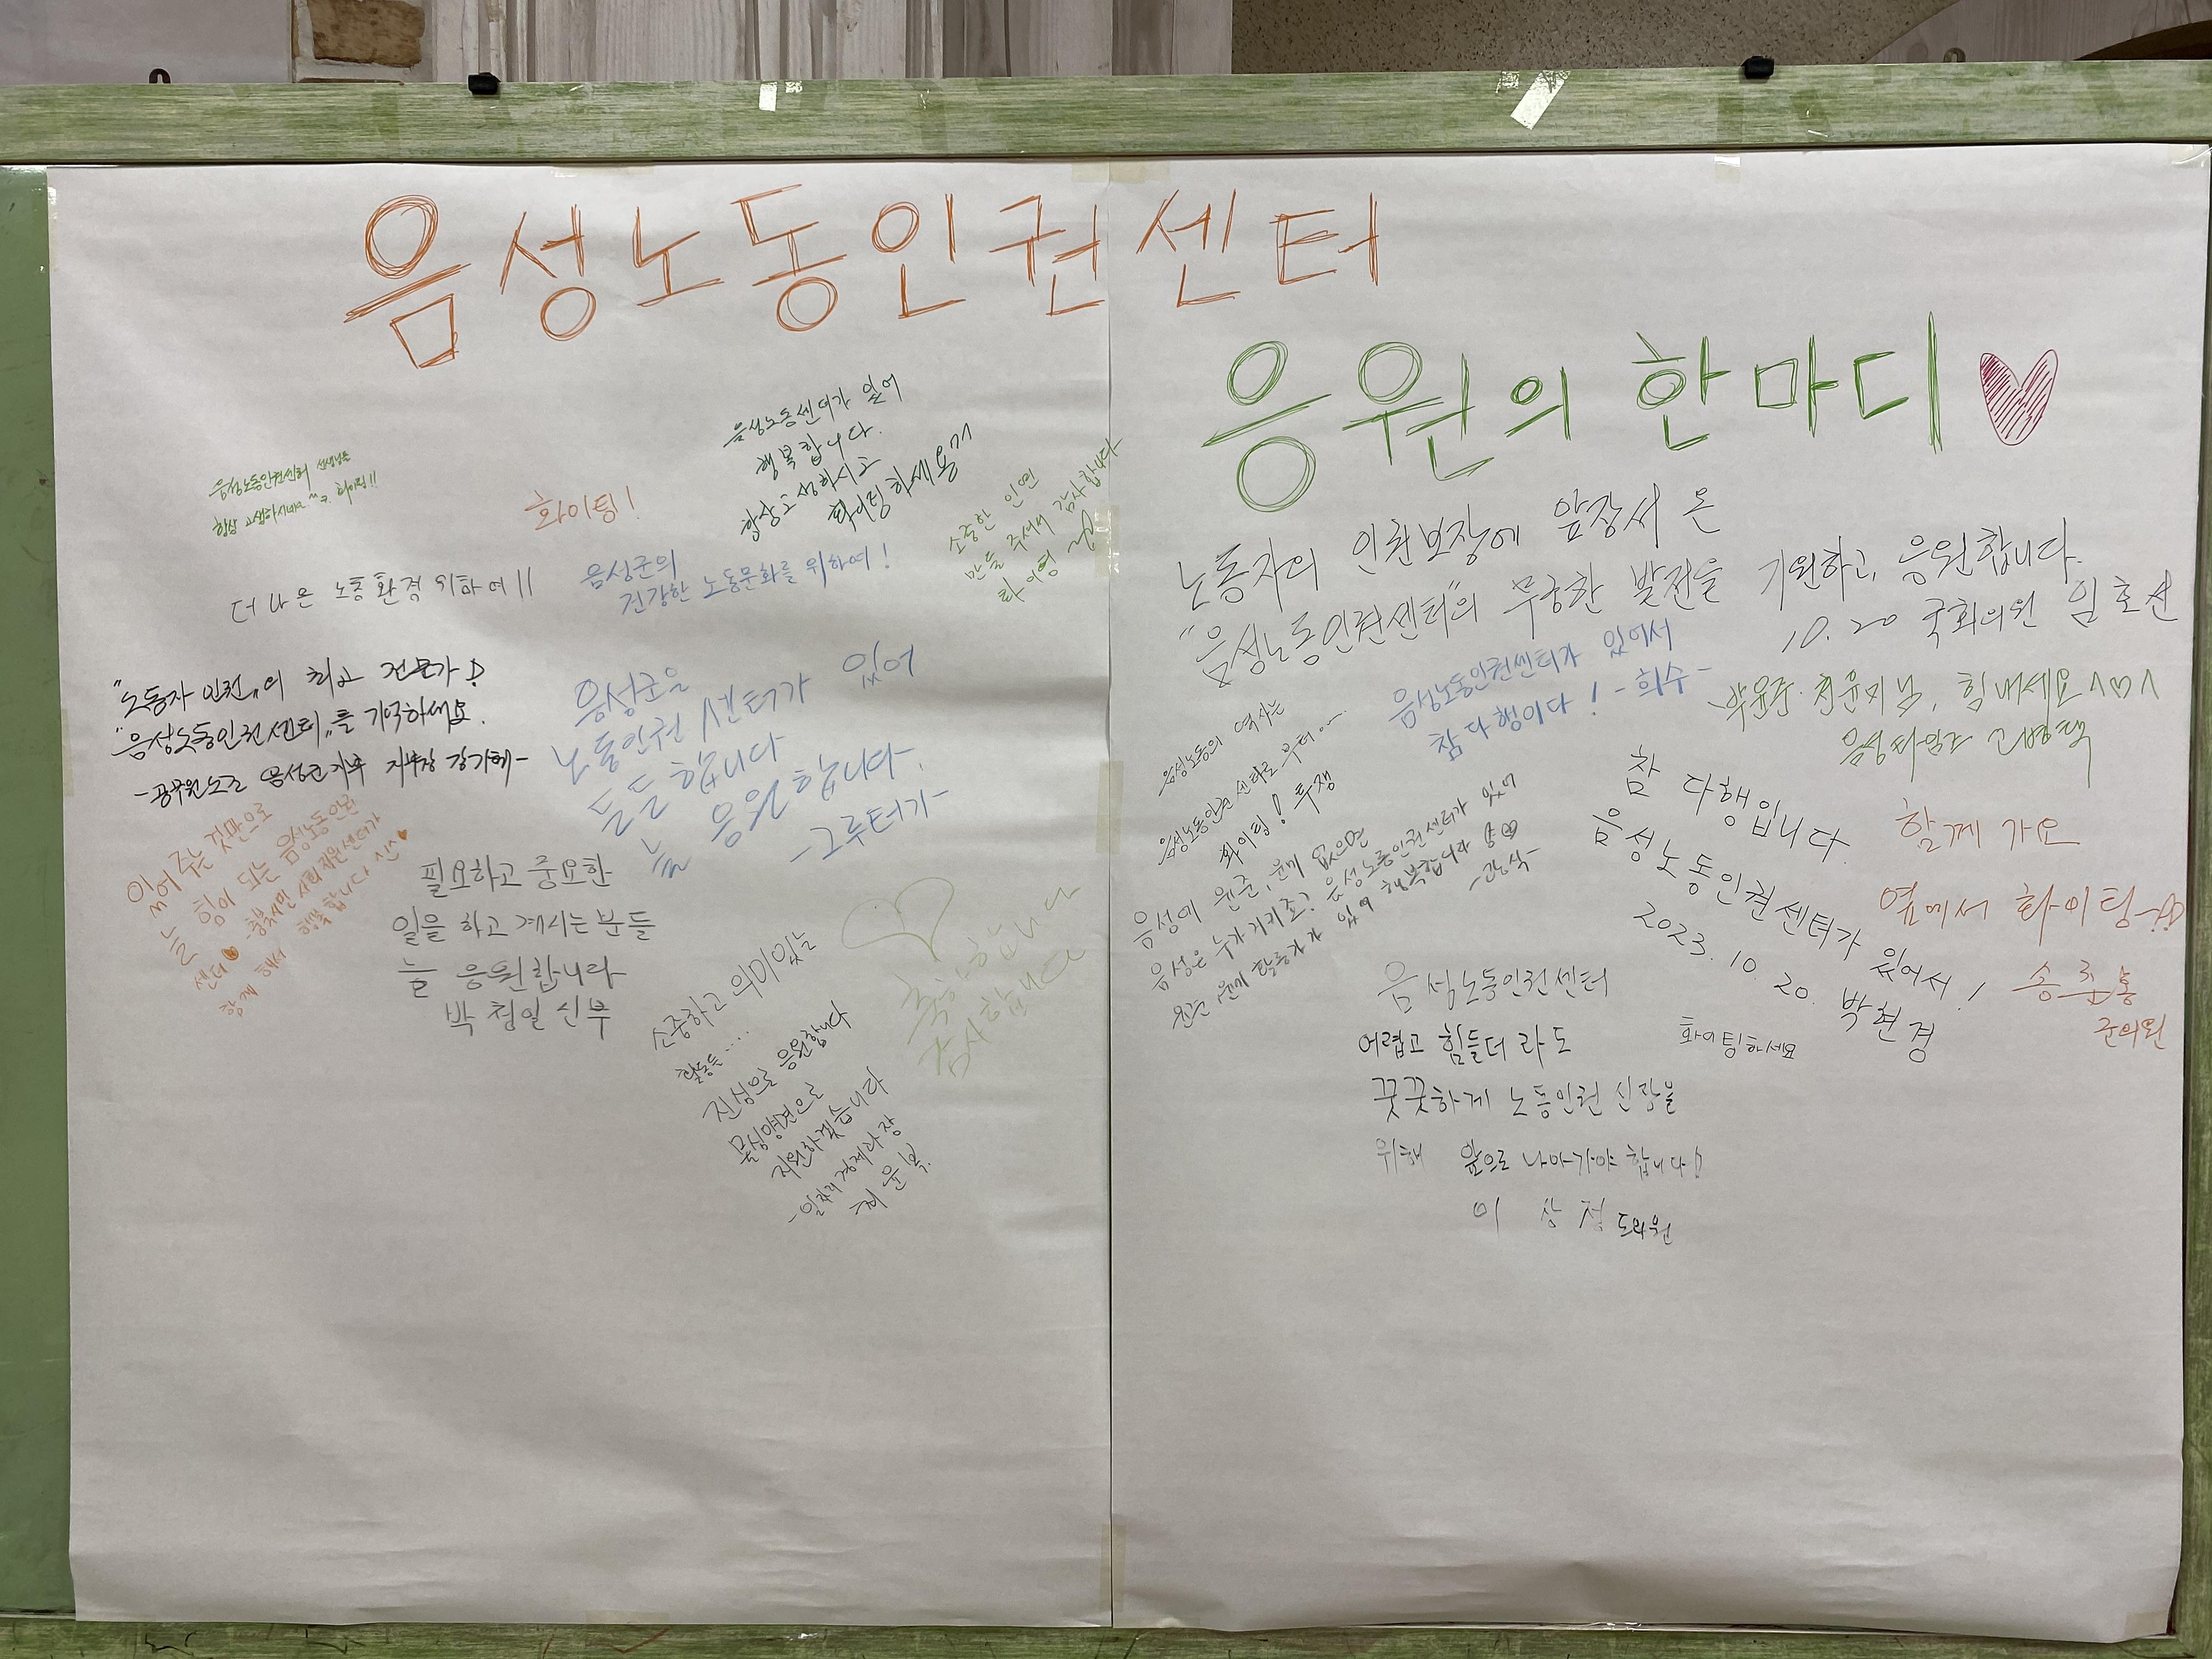 음성노동인권센터
응원의 한마디
음성노동인권센터 선생님들
항상 고생하시네요 ^^ 화이팅!!
화이팅!
음성노동센터가 있어
행복합니다.
항상고생하시고
화이팅하세용
소중한 인연
만들어 주셔서 감사합니다
화이팅
더 나은 노동환경 위하여!!
음성군의
건강한 노동문화를 위하여!
"노동자 인권"의 최고 전문가!
"음성노동인권센터"를 기억하세요.
-공무원노조 음성군지부 지부장
음성군은
노동인권센터가 있어
든든합니다
늘 응원합니다.
-그루터기-
있어 주는 것만으로
늘 힘이 되는 음성노동인권
센터♥ -충북시민사회지원센터가
함께 해서 행복합니다
필요하고 중요한
일을 하고 계시는 분들
늘 응원합니다
박청일 신부
소중하고 의미있는
활동들....
진심으로 응원합니다
물심양면으로
지원하겠습니다
-일자리경제과장
축하합니다
감사합니다
노동자의 인권보장에 앞장서 온
"음성노동인권센터"의 무궁한 발전을 기원하고, 응원합니다.
10. 20 국회의원 임호선
음성노동인권센터가 있어서
참 다행이다! -희수-
힘내세요^♡^
음성타임즈 고병택
음성노동의 역사는
음성노동인권센터로 부터.....
화이팅! 투쟁
음성에 윤준, 윤미 없으면
음성은 누가 지키죠? 음성노동인권센터가 있어
활동가가 있어 행복합니다
참 다행입니다.
음성노동인권센터가 있어서!
2023. 10. 20. 박현경
함께 가요
옆에서 화이팅~!!
송춘홍
군의원
음성노동인권센터
어렵고 힘들더라도
꿋꿋하게 노동인권 신장을
위해 앞으로 나아가야 합니다!
이상정 도의원
화이팅하세요